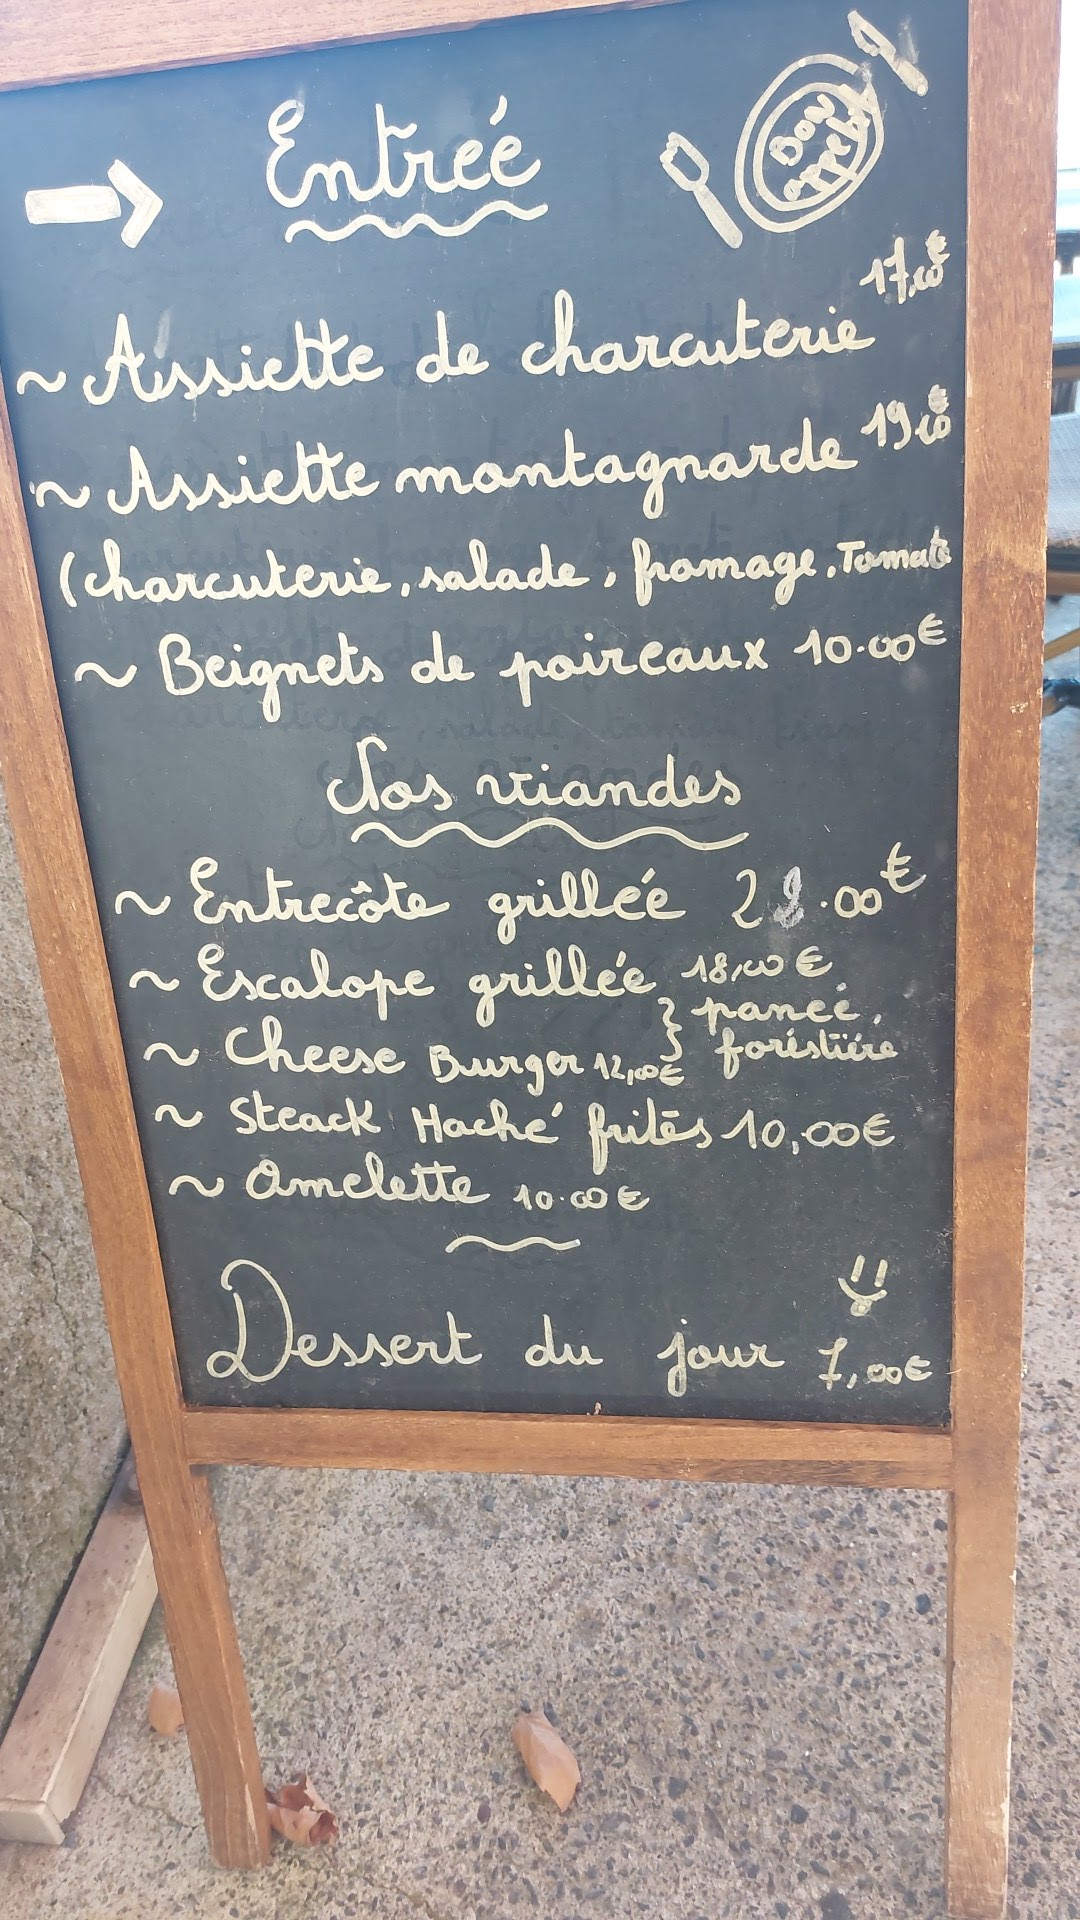 Entréé
Bon
appetit
~ Assiette de charcuterie 17,00€
~ Assiette montagnarde 19,00€
(charcuterie, salade, fromage, Tomate
~ Beignets de poireaux 10.00€
Nos viandes
~ Entrecôte grilléé .00€
~ Escalope grilléé 18,00€
} panéé,
~ Cheese Burger 12,00€
foréstiére
~ Steack Haché frites 10,00€
~ Omelette 10.00€
Dessert du jour 7,00€